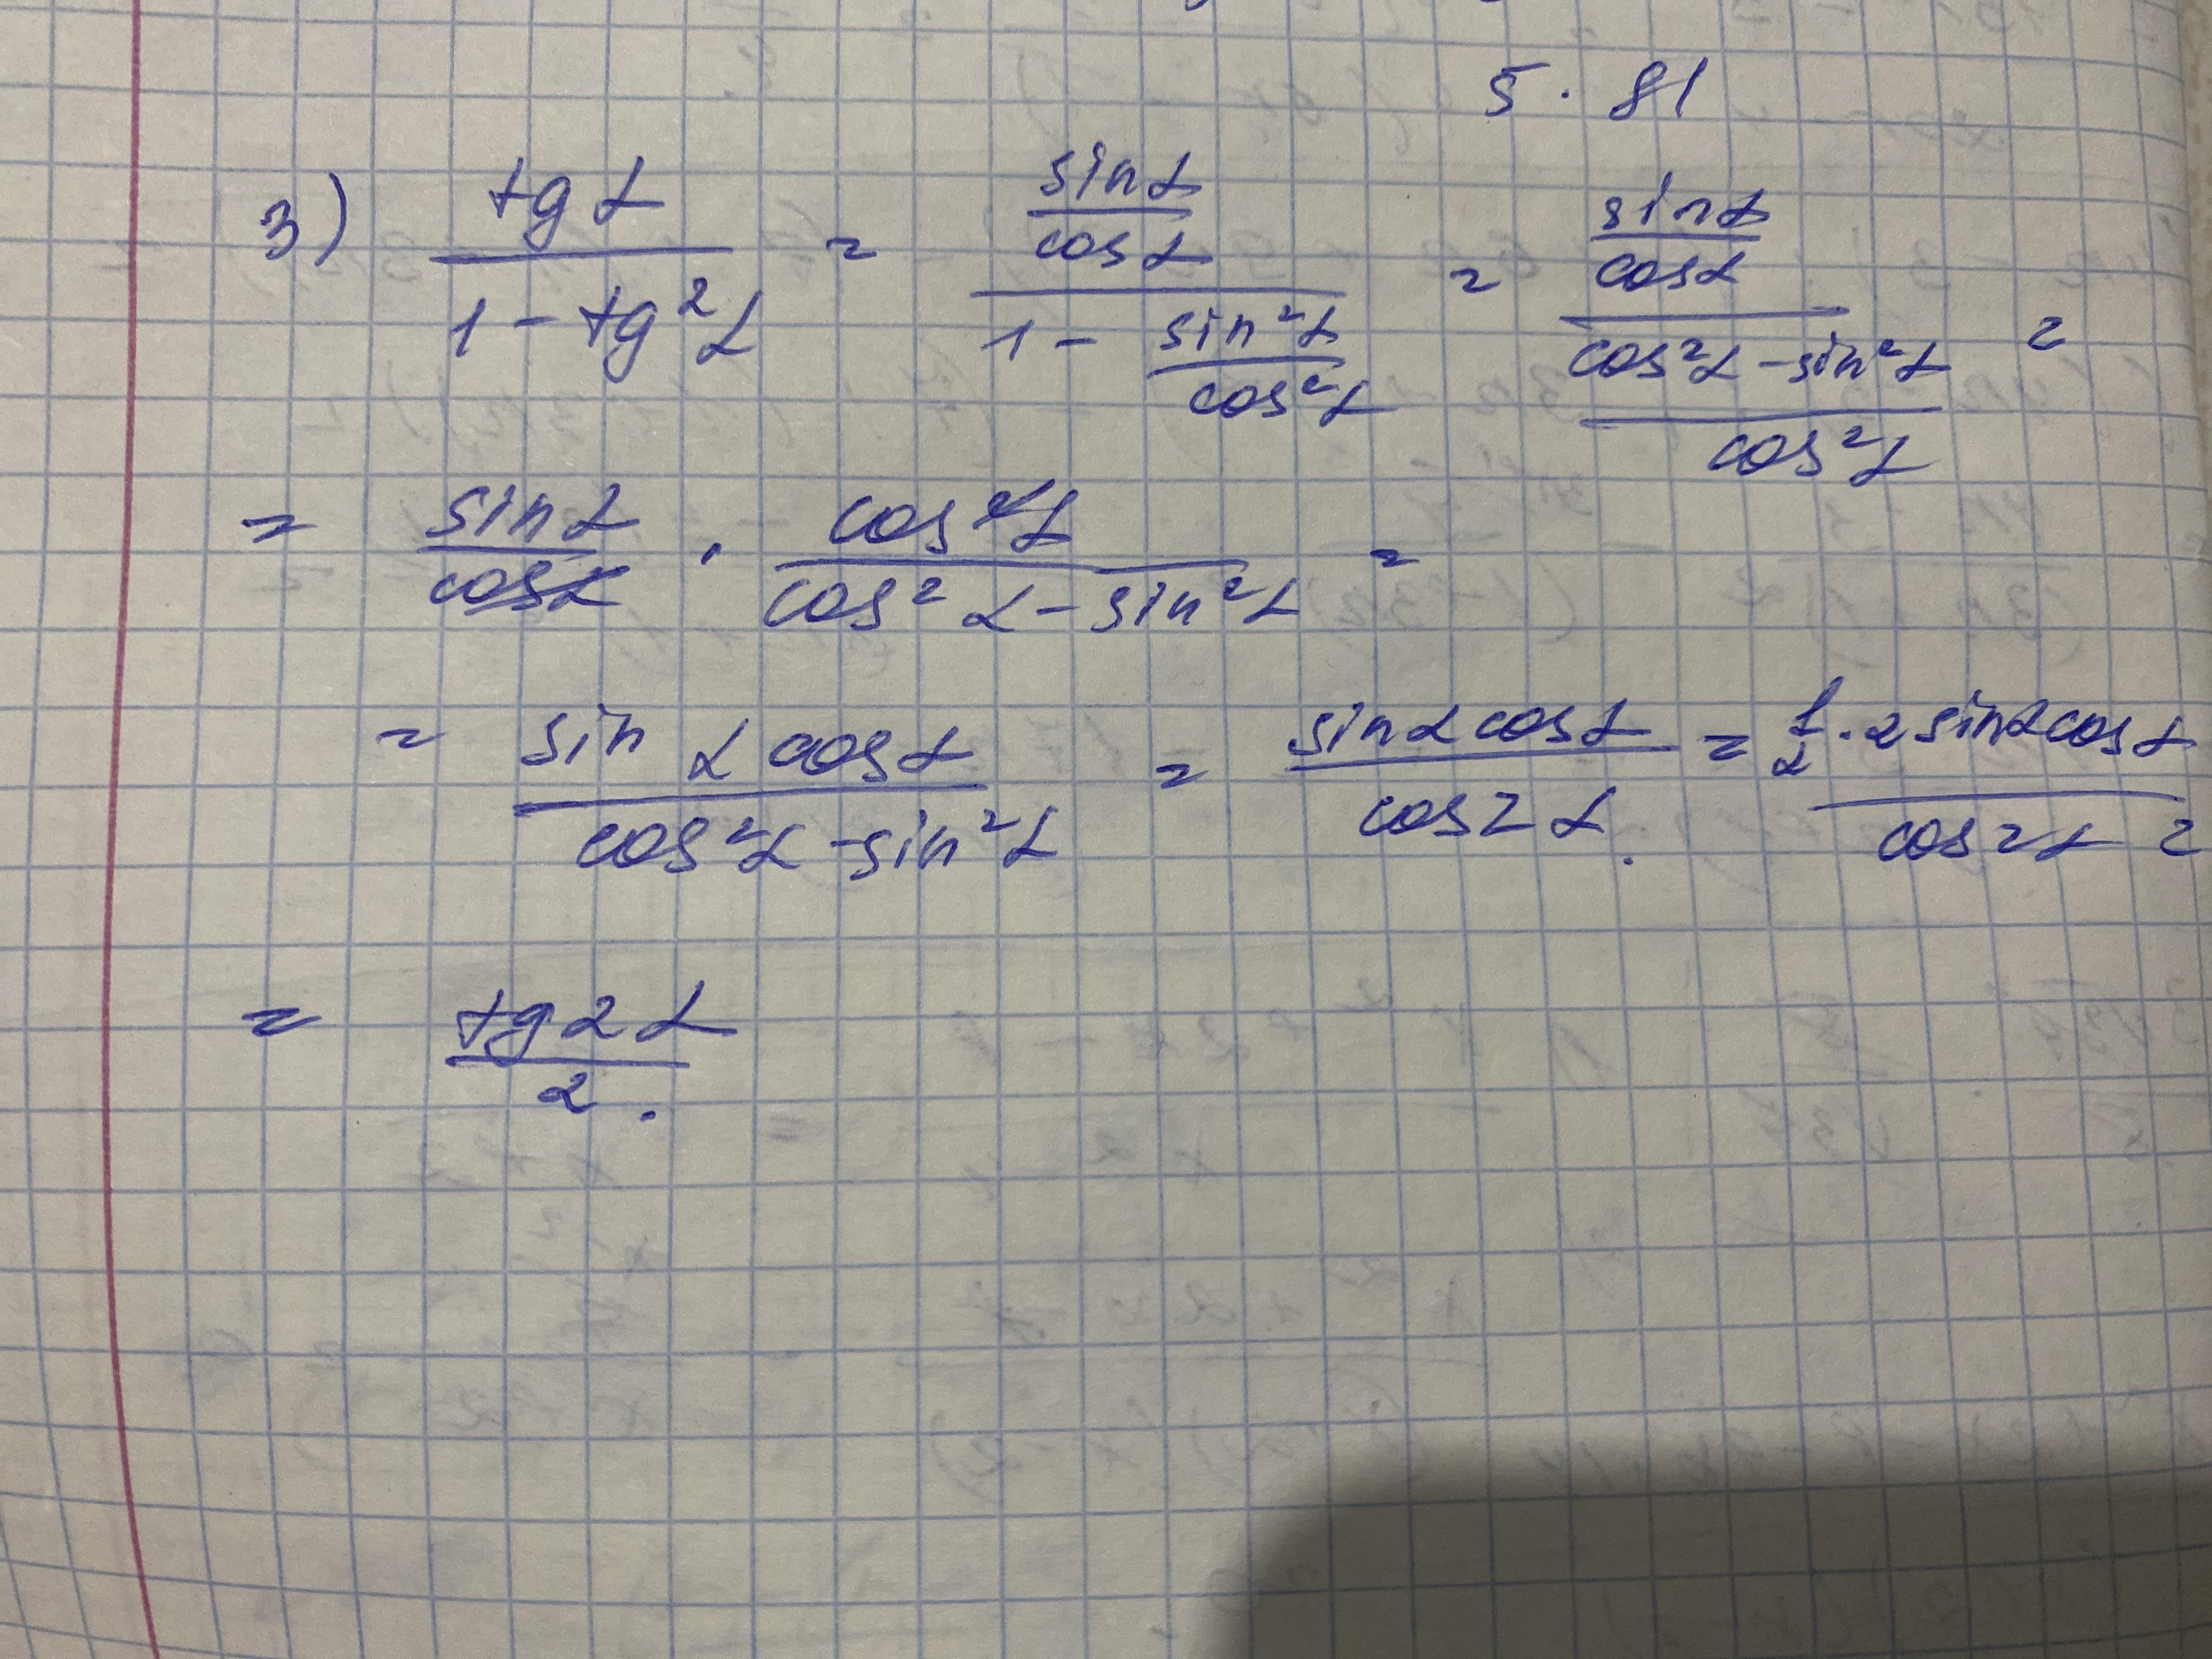 5.81
3) tg α / (1 - tg² α) = (sin α / cos α) / (1 - sin² α / cos² α) = (sin α / cos α) / ((cos² α - sin² α) / cos² α) =
= sin α / cos α · cos² α / (cos² α - sin² α) =
= sin α cos α / (cos² α - sin² α) = sin α cos α / cos 2α. = 1/2 · 2 sin α cos α / cos 2α =
= tg 2α / 2.